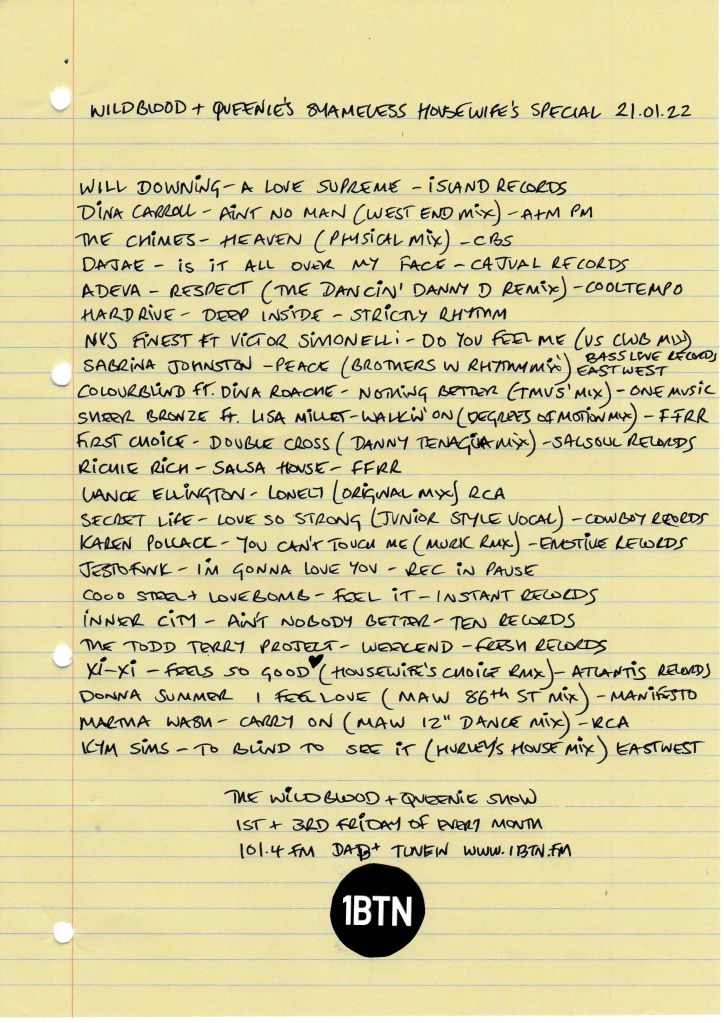 WILDBLOOD + QUEENIE'S SHAMELESS HOUSEWIFE'S SPECIAL 21.01.22
WILL DOWNING - A LOVE SUPREME - ISLAND RECORDS
DINA CARROLL - AINT NO MAN (WEST END MIX) - A+M PM
THE CHIMES - HEAVEN (PHYSICAL MIX) - CBS
DAJAE - IS IT ALL OVER MY FACE - CAJUAL RECORDS
ADEVA - RESPECT (THE DANCIN' DANNY D REMIX) - COOLTEMPO
HARDRIVE - DEEP INSIDE - STRICTLY RHYTHM
NYS FINEST FT VICTOR SIMONELLI - DO YOU FEEL ME (US CLUB MIX)
BASSLINE RECORDS
SABRINA JOHNSTON - PEACE (BROTHERS IN RHYTHM MIX) EASTWEST
COLOURBLIND FT. DINA ROACHE - NOTHING BETTER (TMVS' MIX) - ONE MUSIC
SHEER BRONZE FT. LISA MILLET - WALKIN' ON (DEGREES OF MOTION MIX) - FFRR
FIRST CHOICE - DOUBLE CROSS (DANNY TENAGLIA MIX) - SALSOUL RECORDS
RICHIE RICH - SALSA HOUSE - FFRR
LANCE ELLINGTON - LONELY (ORIGINAL MIX) RCA
SECRET LIFE - LOVE SO STRONG (JUNIOR STYLE VOCAL) - COWBOY RECORDS
KAREN POLLACK - YOU CAN'T TOUCH ME (MURK RMX) - EMOTIVE RECORDS
JESTOFUNK - I'M GONNA LOVE YOU - REC IN PAUSE
COCO STEEL + LOVEBOMB - FEEL IT - INSTANT RECORDS
INNER CITY - AIN'T NOBODY BETTER - TEN RECORDS
THE TODD TERRY PROJECT - WEEKEND - FRESH RECORDS
XI-XI - FEELS SO GOOD ♥ (HOUSEWIFE'S CHOICE RMX) - ATLANTIS RECORDS
DONNA SUMMER I FEEL LOVE (MAW 86th ST MIX) - MANIFESTO
MARTHA WASH - CARRY ON (MAW 12" DANCE MIX) - RCA
KYM SIMS - TO BLIND TO SEE IT (HURLEY'S HOUSE MIX) EASTWEST
THE WILDBLOOD + QUEENIE SHOW
1ST + 3RD FRIDAY OF EVERY MONTH
101.4 FM DAB+ TUNEIN WWW.1BTN.FM
1BTN